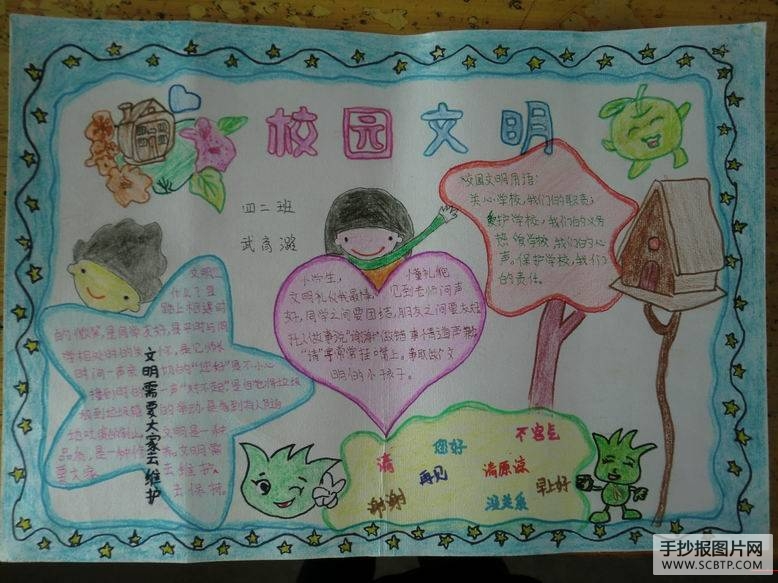 校园文明
四二班
武高潞
校园文明用语:
关心学校,我们的职责;
爱护学校,我们的义务
热爱学校,我们的心
声。保护学校,我们
的责任。
小学生, 懂礼貌
文明礼仪我最懂。见到老师问声
好,同学之间要团结,朋友之间要友好
托人做事说"谢谢"做错事情道声歉
"请"字常常挂口嘴上。争取做个文
明的小孩子。
文明是
什么?是
路上相遇时
的微笑,是同学友好,是平时与同
学相处时的
时间一声亲切的"您好"是不小心
撞到对的一声"对不起"是自觉将垃圾
放到垃圾箱的举动,是看到有人随
地吐痰的制止。文明是一种
品质,是一种修养。文明需
要大家去维护,
去保持。
文明需要大家去维护
不客气
您好
请
再见
请原谅
谢谢
没关系
早上好
手抄报图片网
WWW.SCBTP.COM